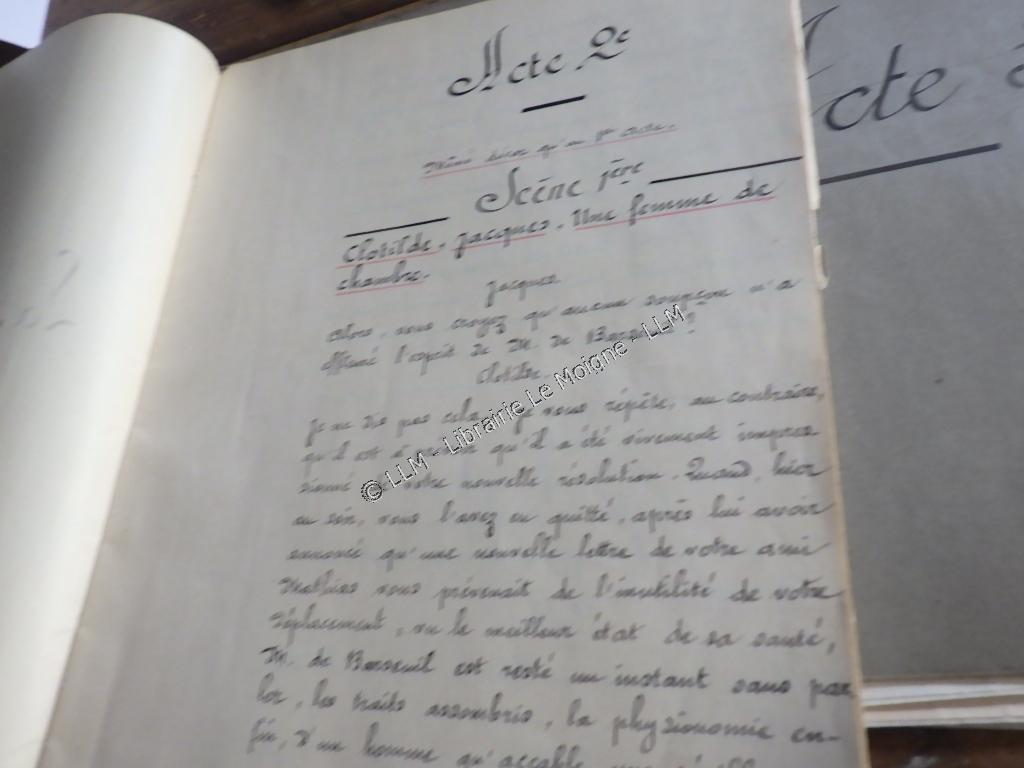 Acte 2e
Même décor qu'au 1er Acte.
Scène 1ère
Clotilde. Jacques. Une femme de
chambre.
Jacques
Alors, vous croyez qu'aucun soupçon n'a
effleuré l'esprit de M. de Barseuil ?
Clotilde
Je ne dis pas cela. Je vous répète, au contraire,
qu'il est qu'il a été vivement impres
sionné votre nouvelle résolution. Quand, hier
au soir, vous l'avez eu quitté, après lui avoir
annoncé qu'une nouvelle lettre de votre ami
Mathieu vous prévenait de l'inutilité de votre
déplacement, vu le meilleur état de sa santé,
M. de Barseuil est resté un instant sans par
ler, les traits assombris, la physionomie en-
fin, d'un homme qu'accable une
Acte
2
© LLM - Librairie Le Moigne - LLM